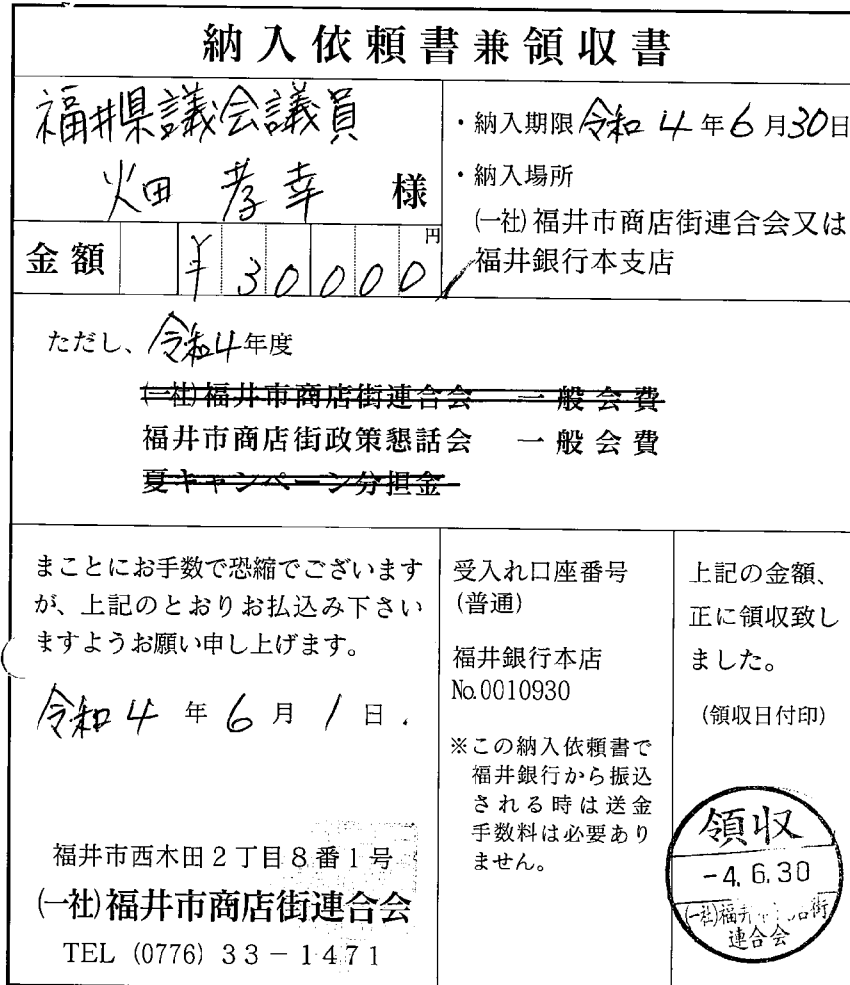 納入依頼書兼領収書
福井県議会議員
畑 孝幸 様
・納入期限 令和 4 年 6 月 30 日
・納入場所
(一社)福井市商店街連合会又は
福井銀行本支店
金額 ¥30000円
ただし、令和4年度
(一社)福井市商店街連合会 一般会費
福井市商店街政策懇話会 一般会費
夏キャンペーン分担金
まことにお手数で恐縮でございます
が、上記のとおりお払込み下さい
ますようお願い申し上げます。
令和 4 年 6 月 1 日
福井市西木田2丁目8番1号
(一社)福井市商店街連合会
TEL (0776) 33-1471
受入れ口座番号
(普通)
福井銀行本店
No.0010930
※この納入依頼書で
福井銀行から振込
される時は送金
手数料は必要あり
ません。
上記の金額、
正に領収致し
ました。
(領収日付印)
領収
-4.6.30
(一社)福井 店街
連合会